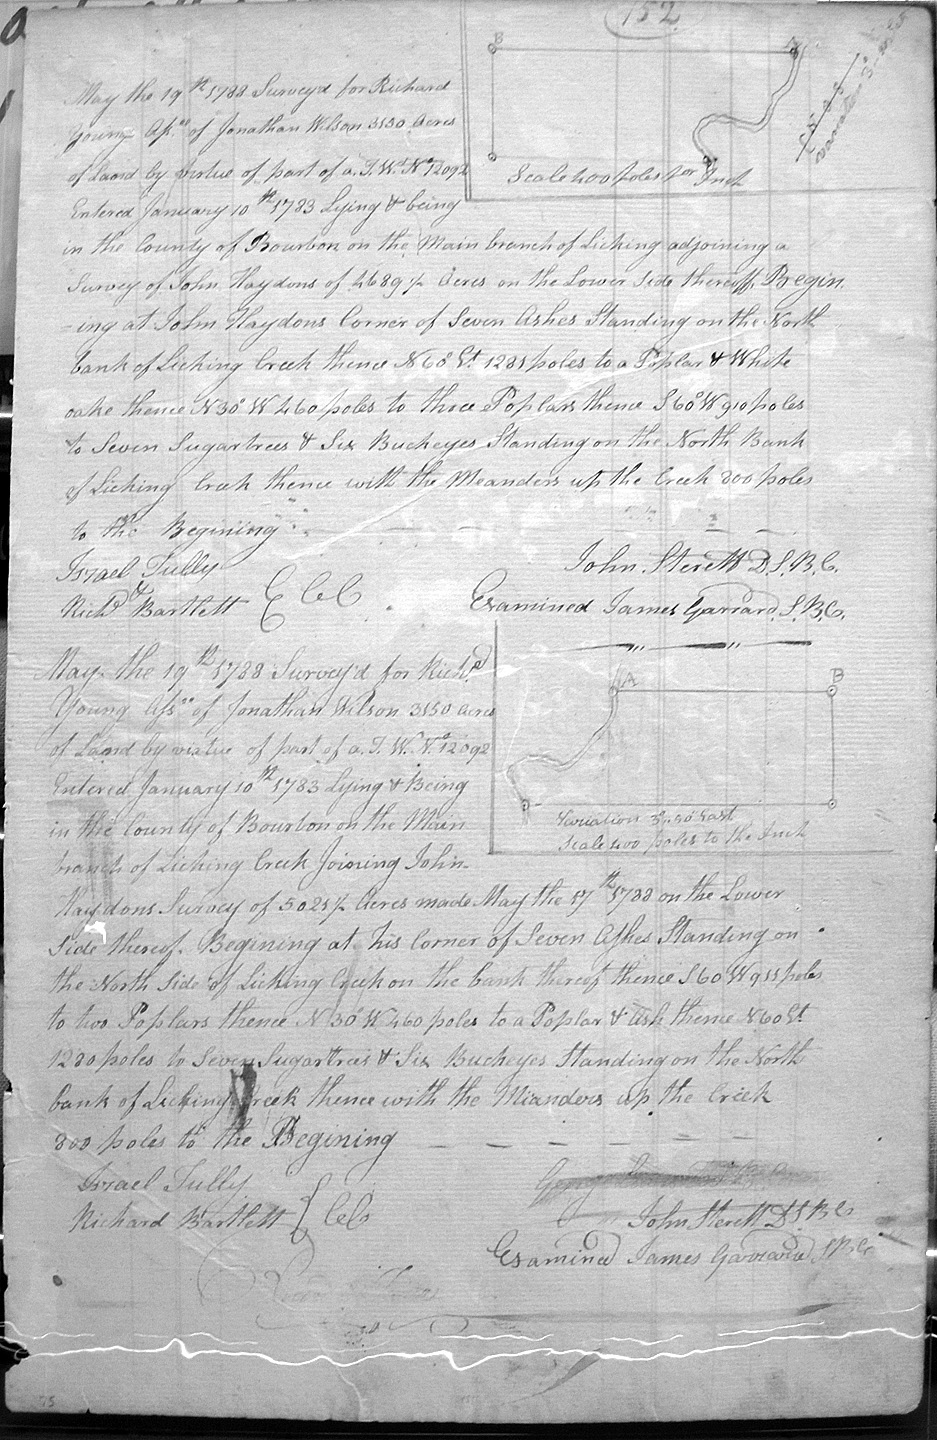 152
B
A
Scale 400 poles pr Inch
May the 19th 1788 Survey'd for Richard
Young Assee of Jonathan Wilson 3150 Acres
of Land by virtue of part of a T. W. No 12092
Entered January 10th 1783 Lying & being
in the County of Bourbon on the Main branch of Licking adjoining a
Survey of John Haydons of 4689½ Acres on the Lower Side thereoff Begin
-ing at John Haydons Corner of Seven Ashes Standing on the North
bank of Licking Creek thence N 60° Et 1281 poles to a Poplar & White
oake thence N 30° W 460 poles to three Poplars thence S 60° W 910 poles
to Seven Sugartrees & Six Buckeyes Standing on the North Bank
of Licking Creek thence with the Meanders up the Creek 800 poles
to the Begining
Israel Tully
Richd Bartlett } CCC
John Sterett D.S.B.C.
Examined James Garrard. S.B.Co.
May the 19th 1788 Survey'd for Richd
Young Assee of Jonathan Wilson 3150 Acres
of Land by virtue of part of a T. W. No 12092
Entered January 10th 1783 Lying & Being
in the County of Bourbon on the Main
branch of Licking Creek Joining John
A
B
Variation East
Scale 400 poles to the Inch
Haydons Survey of 5025½ Acres made May the 17th 1788 on the Lower
Side thereof. Begining at his Corner of Seven Ashes Standing on
the North Side of Licking Creek on the bank thereof thence S 60 W 911 poles
to two Poplars thence N 30° W 460 poles to a Poplar & Ash thence N 60 Et
1280 poles to Seven Sugartrees & Six Buckeyes Standing on the North
bank of Licking Creek thence with the Mianders up the Creek
800 poles to the Begining
Israel Tully
Richard Bartlett } CCs
John Sterett D S B Co
Examined James Garrard S.B.Co